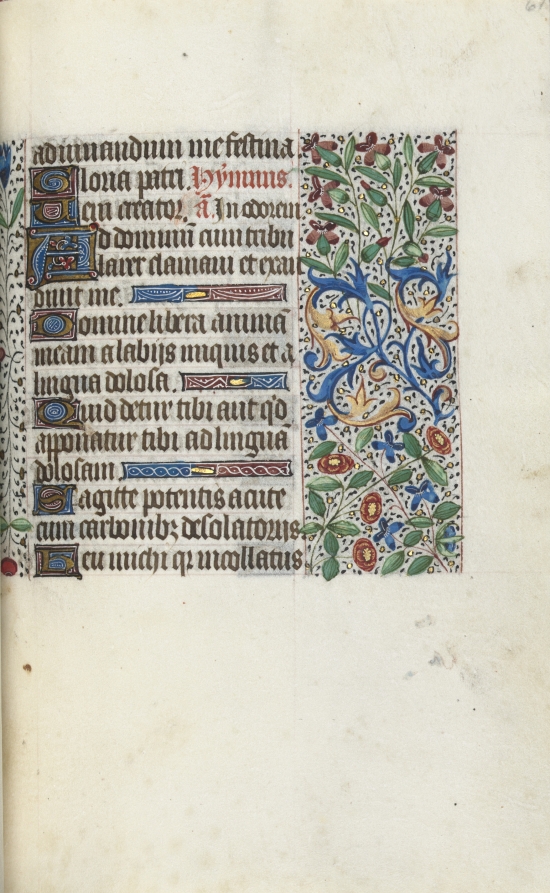 61
ad iuuandum me festina
Gloria patri. Hymnus.
Ueni creator. a͞. In odorem
Ad dominũ cum tribu
larer clamaui et exau
diuit me.
Domine libera animã
meam a labijs iniquis et a
lingua dolosa.
Quid detur tibi aut q͛d
apponatur tibi ad linguã
dolosam
Sagitte potentis acute
cum carbonibꝫ desolatorijs
Heu michi qꝛ incollatus